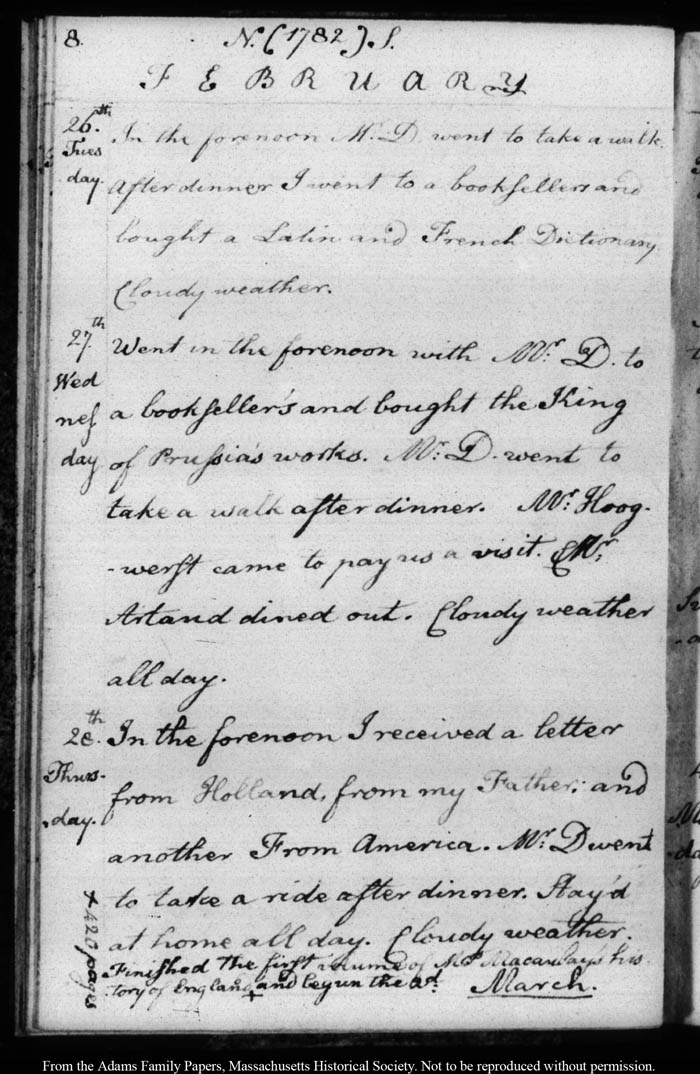 8.
N. (1782) S.
FEBRUARY
26.th Tuesday. In the forenoon Mr. D. went to take a walk.
After dinner I went to a booksellers and
bought a Latin and French Dictionary.
Cloudy weather.
27.th Wednesday Went in the forenoon with Mr. D. to
a bookseller's and bought the King
of Prussia's works. Mr. D. went to
take a walk after dinner. Mr. Hoog-
-werft came to pay us a visit. Mr.
Artaud dined out. Cloudy weather
all day.
28.th Thursday. In the forenoon I received a letter
from Holland, from my Father; and
another From America. Mr. D went
to take a ride after dinner. Stay'd
at home all day. Cloudy weather.
Finished the first volume of Mrs Macaulay's his-
tory of England + and begun the 2d. March.
+ 420 pages
From the Adams Family Papers, Massachusetts Historical Society. Not to be reproduced without permission.